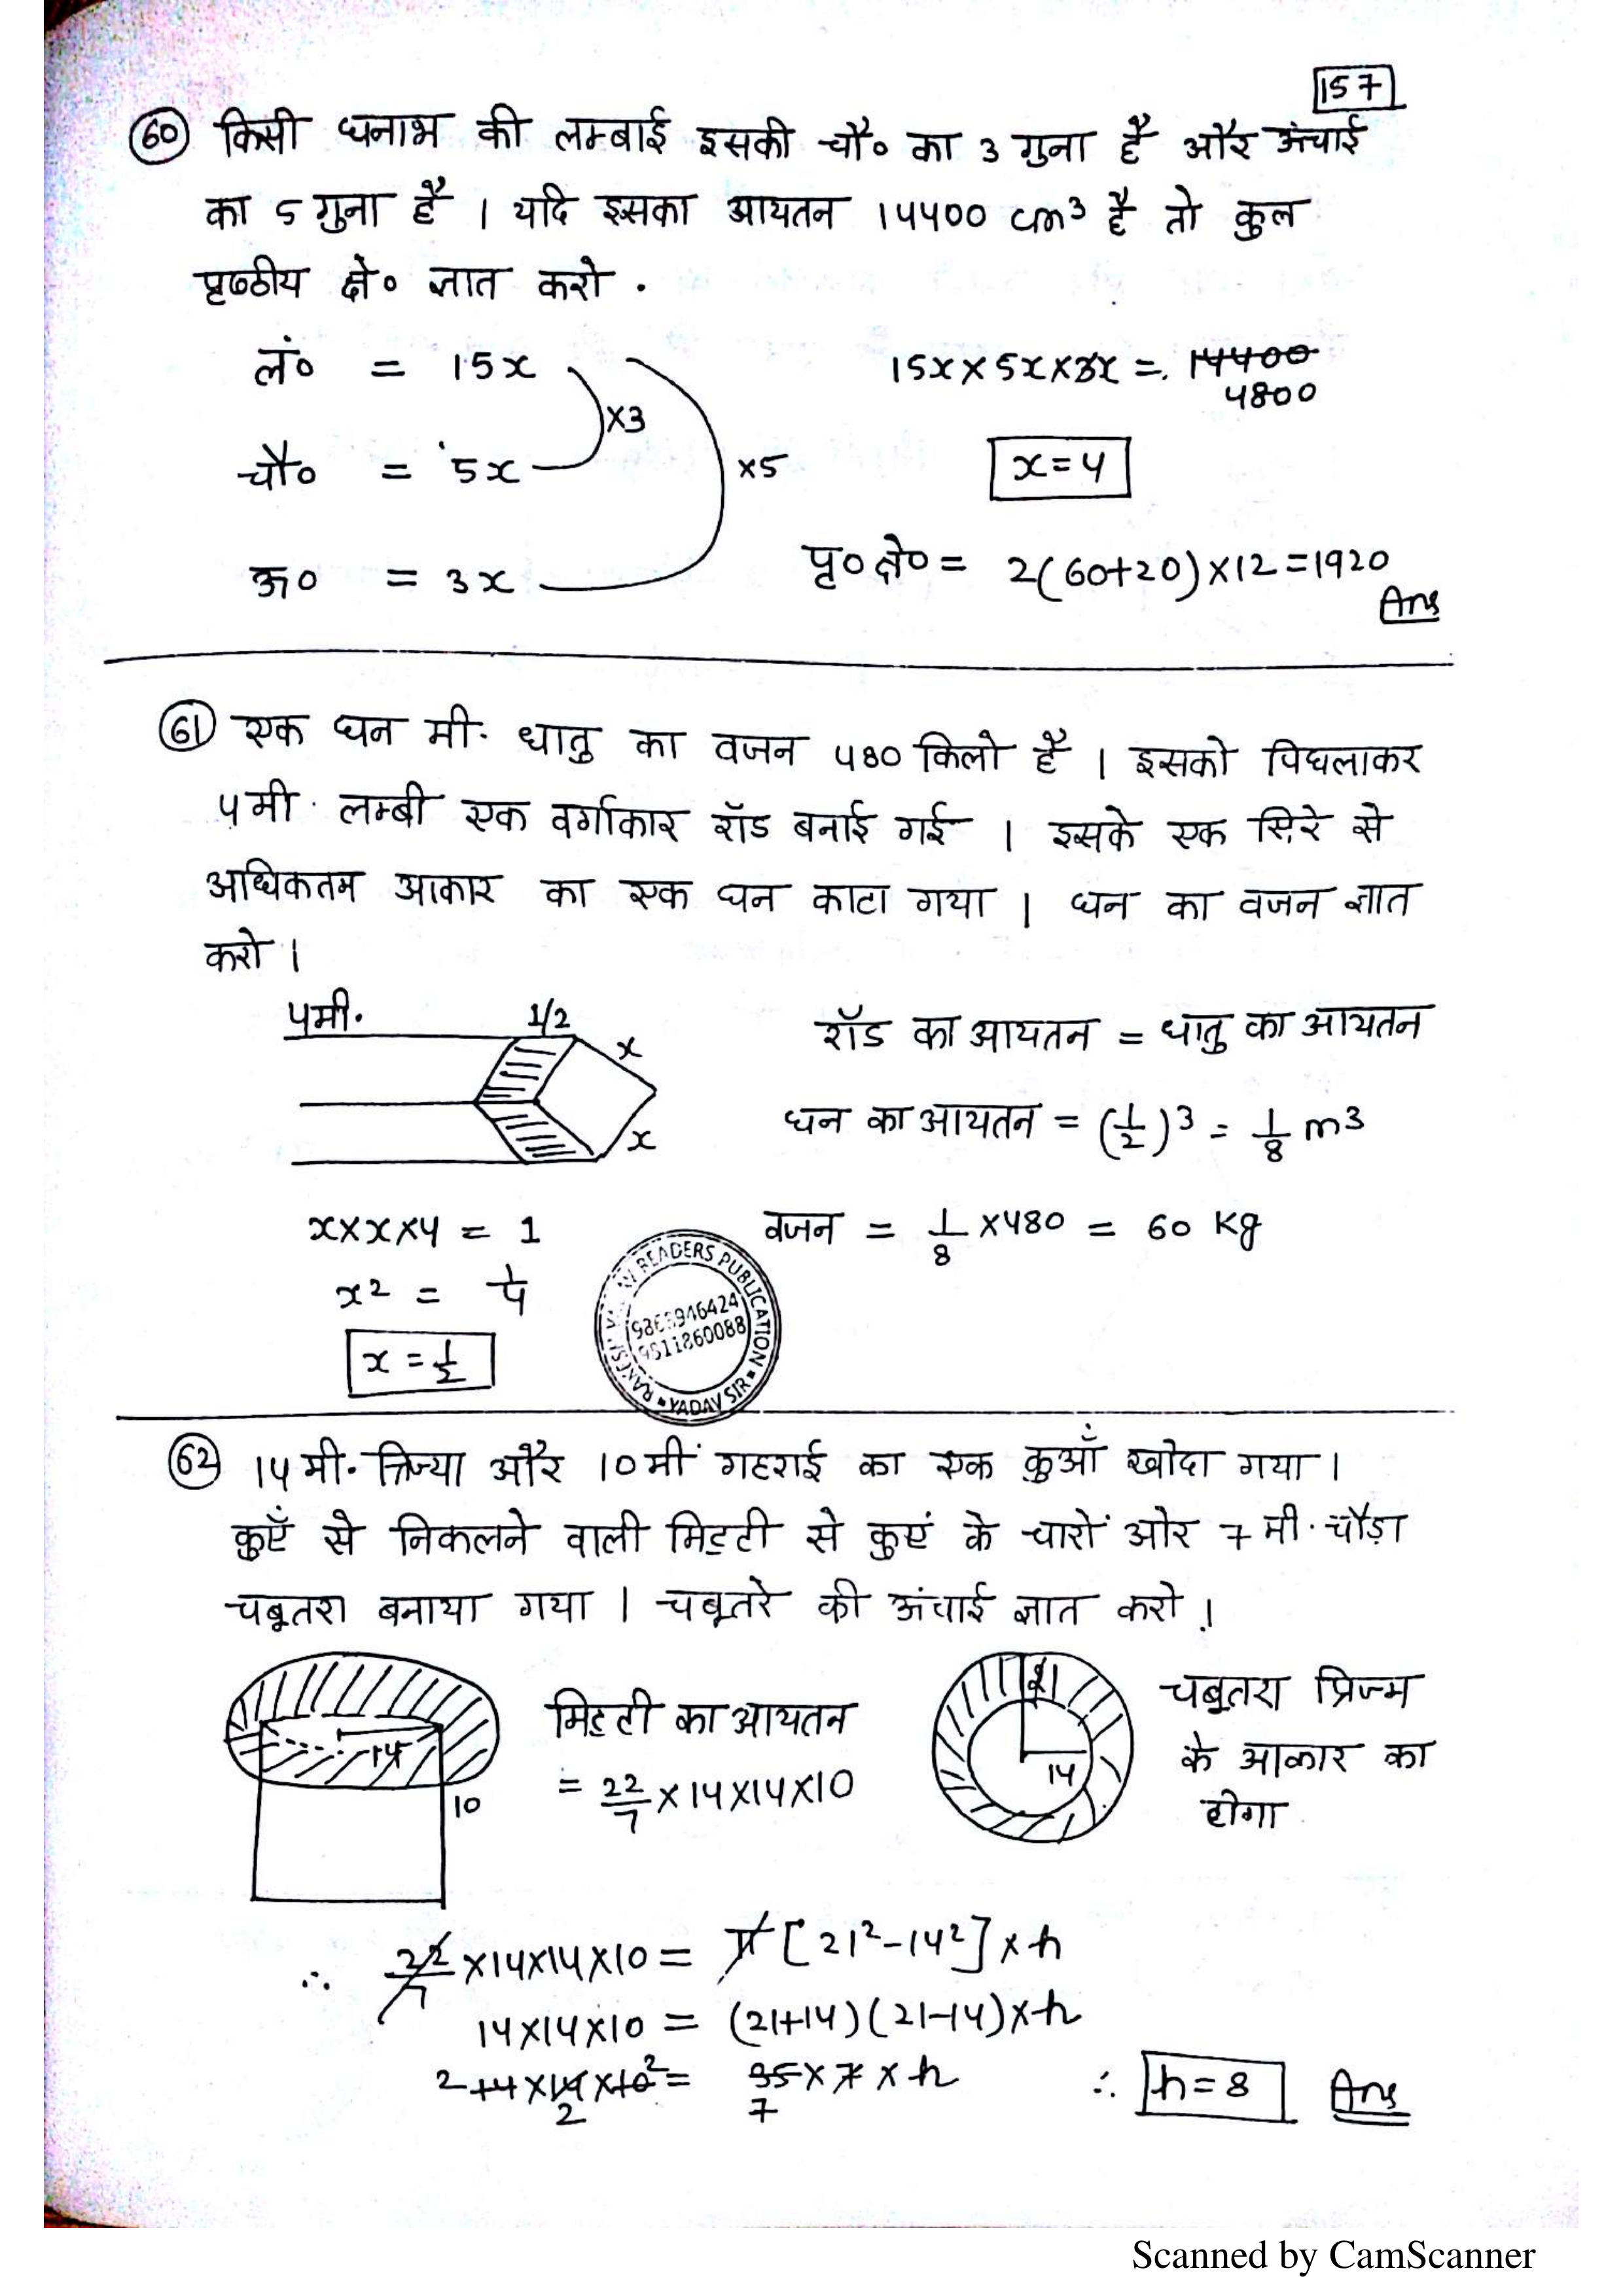 157
60 किसी घनाभ की लम्बाई इसकी चौ० का 3 गुना है और ऊंचाई
का 5 गुना है । यदि इसका आयतन 14400 cm³ है तो कुल
पृष्ठीय क्षे० ज्ञात करो .
लं० = 15x
×3
चौ० = 5x
×5
ऊ० = 3x
15x×5x×3x = 14400
4800
x=4
पृ० क्षे० = 2(60+20)×12=1920
Ans
61 एक घन मी. धातु का वजन 480 किलो है । इसको पिघलाकर
4मी. लम्बी एक वर्गाकार रॉड बनाई गई । इसके एक सिरे से
अधिकतम आकार का एक घन काटा गया । घन का वजन ज्ञात
करो ।
4मी. 1/2 x
x
रॉड का आयतन = धातु का आयतन
घन का आयतन = (1/2)³ = 1/8 m³
x×x×4 = 1
x² = 1/4
x = 1/2
वजन = 1/8 ×480 = 60 Kg
READERS PUBLICATION
YADAV SIR
62 14मी. त्रिज्या और 10मीं गहराई का एक कुआँ खोदा गया ।
कुएँ से निकलने वाली मिट्टी से कुएं के चारों ओर 7 मी. चौड़ा
चबूतरा बनाया गया । चबूतरे की ऊंचाई ज्ञात करो ।
14
10
मिट्टी का आयतन
= 22/7 ×14×14×10
21
14
चबूतरा प्रिज्म
के आकार का
होगा
∴ 22/7 ×14×14×10 = π [21²-14²]×h
14×14×10 = (21+14)(21-14)×h
2 14×14×10 2 = 35×7×h
2 7
∴ h=8 Ans
Scanned by CamScanner